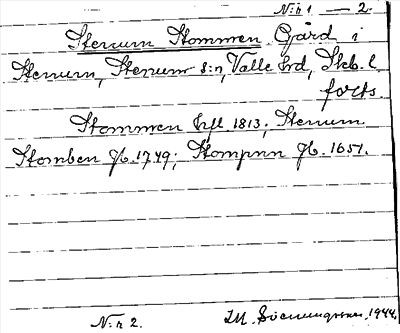 N:r 1 — 2.
Stenum Stommen Gård i
Stenum, Stenum s:n, Valle hd, Skb. l.
forts.
Stommen Hfl. 1813; Stenum
Stomben Jb. 1749; Stompnn Jb. 1651.
N:r 2.
1944.